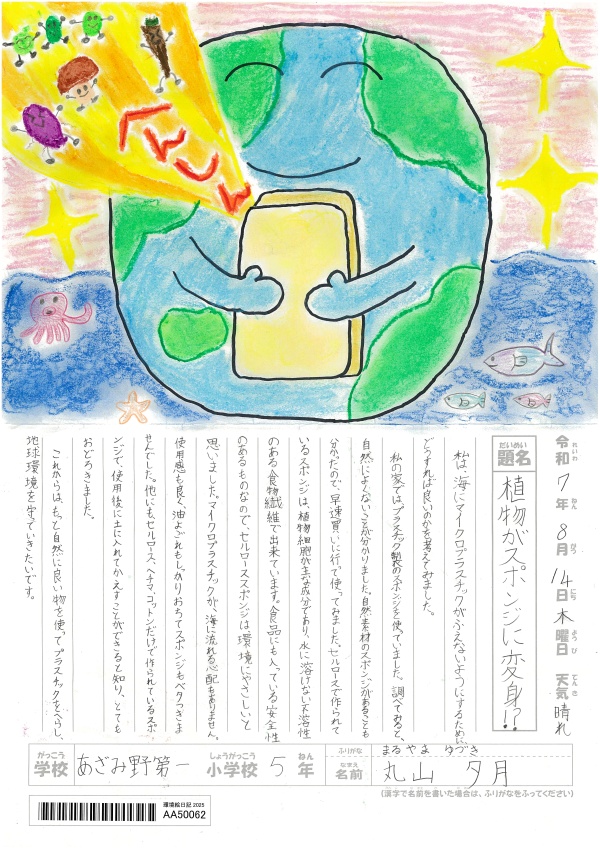 へんしん
令和7年8月14日木曜日 天気 晴れ
れいわ ねん がつ にち ようび てんき
だいめい
題名 植物がスポンジに変身!?
私は、海にマイクロプラスチックがふえないようにするために、
どうすれば良いのかを考えてみました。
私の家では、プラスチック製のスポンジを使っていました。調べてみると、
自然によくないことが分かりました。自然素材のスポンジがあることも
分かったので、早速買いに行って使ってみました。セルロースで作られて
いるスポンジは、植物細胞が主な成分であり、水に溶けない不溶性
のある食物繊維で出来ています。食品にも入っている安全性
のあるものなので、セルローススポンジは、環境にやさしいと
思いました。マイクロプラスチックが、海に流れる心配もありません。
使用感も良く、油よごれもしっかりおちてスポンジもベタつきま
せんでした。他にも、セルロース、ヘチマ、コットンだけで作られているスポ
ンジで、使用後に土に入れてかえすことができると知り、とても
おどろきました。
これからは、もっと自然に良い物を使ってプラスチックをへらし、
地球環境を守っていきたいです。
がっこう しょうがっこう ねん
学校 あざみ野第一 小学校 5年
ふりがな まるやま ゆづき
なまえ
名前 丸山 夕月
(漢字で名前を書いた場合は、ふりがなをふってください)
環境絵日記 2025
AA50062